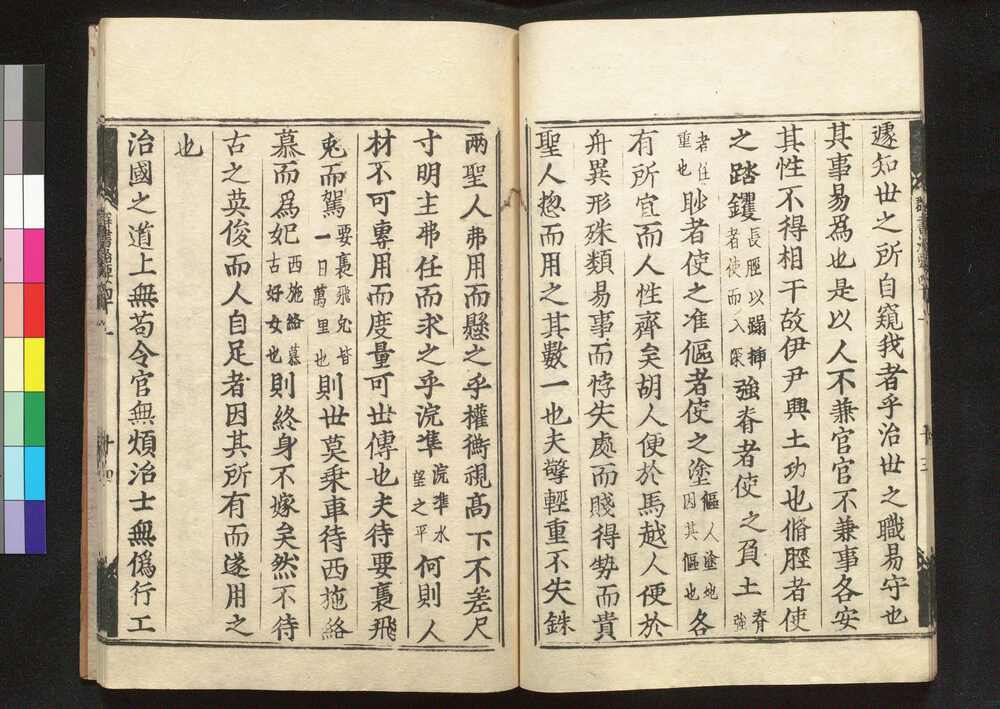 遽知世之所自窺我者乎治世之職易守也
其事易爲也是以人不兼官官不兼事各安
其性不得相干故伊尹興土功也脩脛者使
之踏钁長脛以蹋插者使而入深強脊者使之負土脊強
者任重也眇者使之准傴者使之塗傴人塗地因其傴也各
有所宜而人性齊矣胡人便於馬越人便於
舟異形殊類易事而悖失處而賤得勢而貴
聖人惣而用之其數一也夫擎輕重不失銖
兩聖人弗用而懸之乎權衡視髙下不差尺
寸明主弗任而求之乎浣準浣準水望之平何則人
材不可專用而度量可世傳也夫待要褭飛
兎而駕要褭飛兎皆一日萬里也則世莫乗車待西施絡
慕而爲妃西施絡慕古好女也則終身不嫁矣然不待
古之英俊而人自足者因其所有而遂用之
也
治國之道上無苟令官無煩治士無僞行工
十四